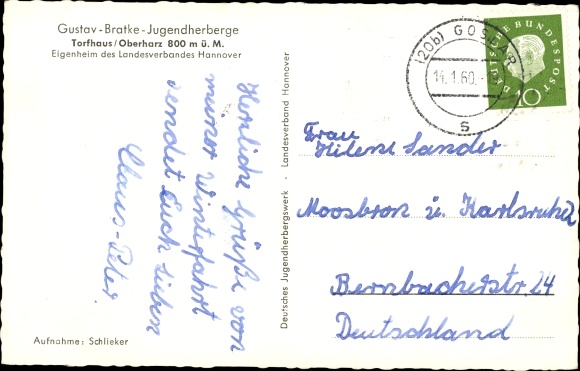 Gustav-Bratke-Jugendherberge
Torfhaus/Oberharz 800 m ü. M.
Eigenheim des Landesverbandes Hannover
Herzliche Grüße von
meiner Winterfahrt
sendet Euch lieben
Claus-Peter
Aufnahme: Schlieker
Deutsches Jugendherbergswerk · Landesverband Hannover
(20b) GOSLAR
14.1.60.
s
DEUTSCHE BUNDESPOST
10
Frau
Hilene Sander
Moosbron ü. Karlsruhe
Bernbacherstr. 24
Deutschland